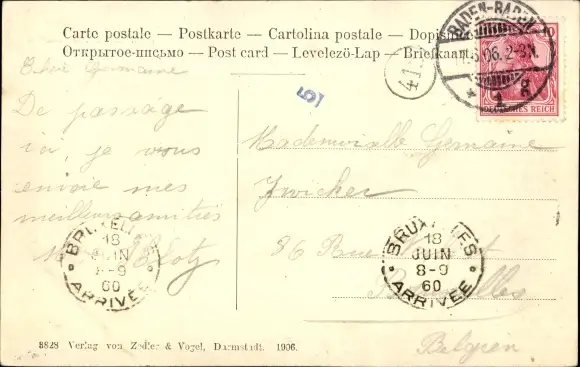 Carte postale — Postkarte — Cartolina postale — Dopisnice
Открытое-письмо — Post card — Levelezö-Lap — Briefkaart
BADEN-BADEN
.6.06. 2-3N.
* 1 g
DEUTSCHES REICH
41
5
Chère Germaine
De passage
ici, je vous
envoie mes
meilleurs amitiés
Mademoiselle Germaine
Zwicker
86 Rue
Bruxelles
Belgien
BRUXELLES
18
JUIN
8-9
60
ARRIVÉE
BRUXELLES
18
JUIN
8-9
60
ARRIVÉE
8828 Verlag von Zedler & Vogel, Darmstadt. 1906.